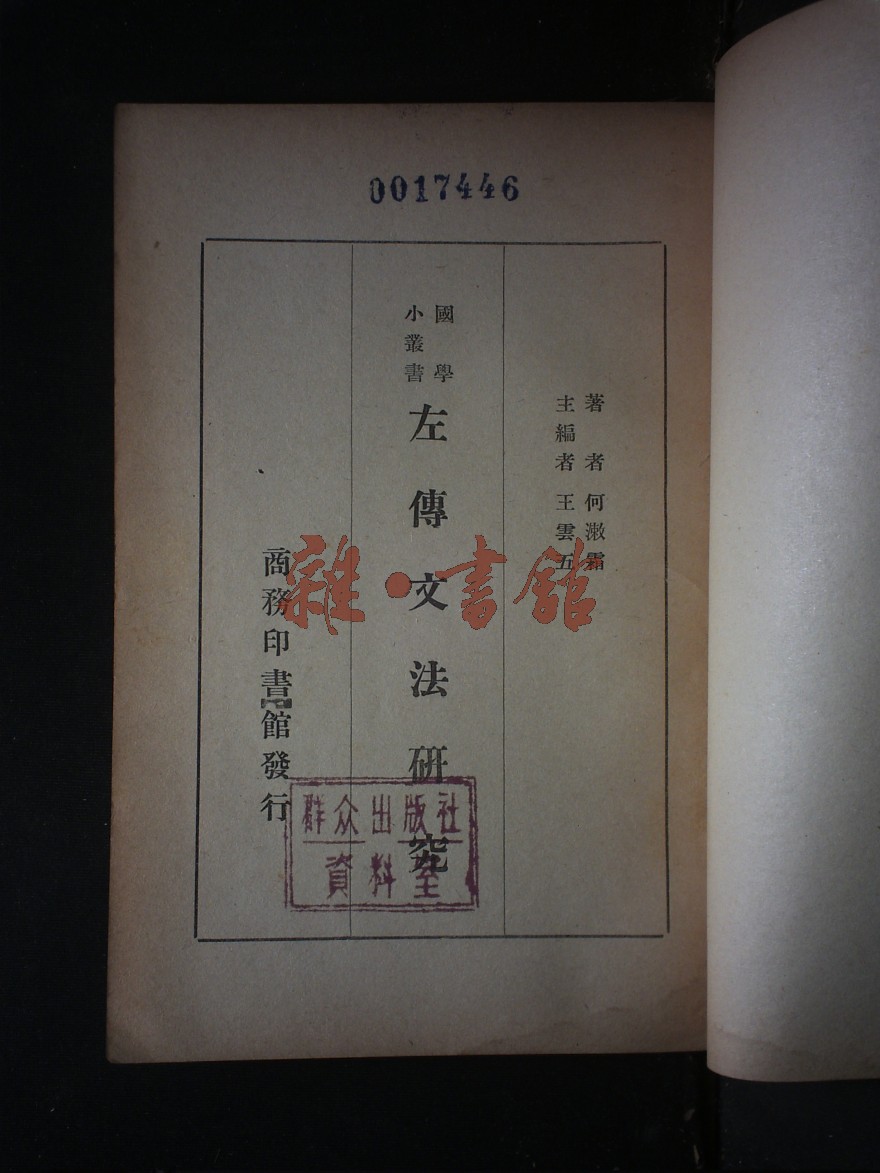 0017446
著者 何漱霜
主編者 王雲五
國學
小叢書
左傳文法研究
商務印書館發行
雜·書館
群众出版社
資料室